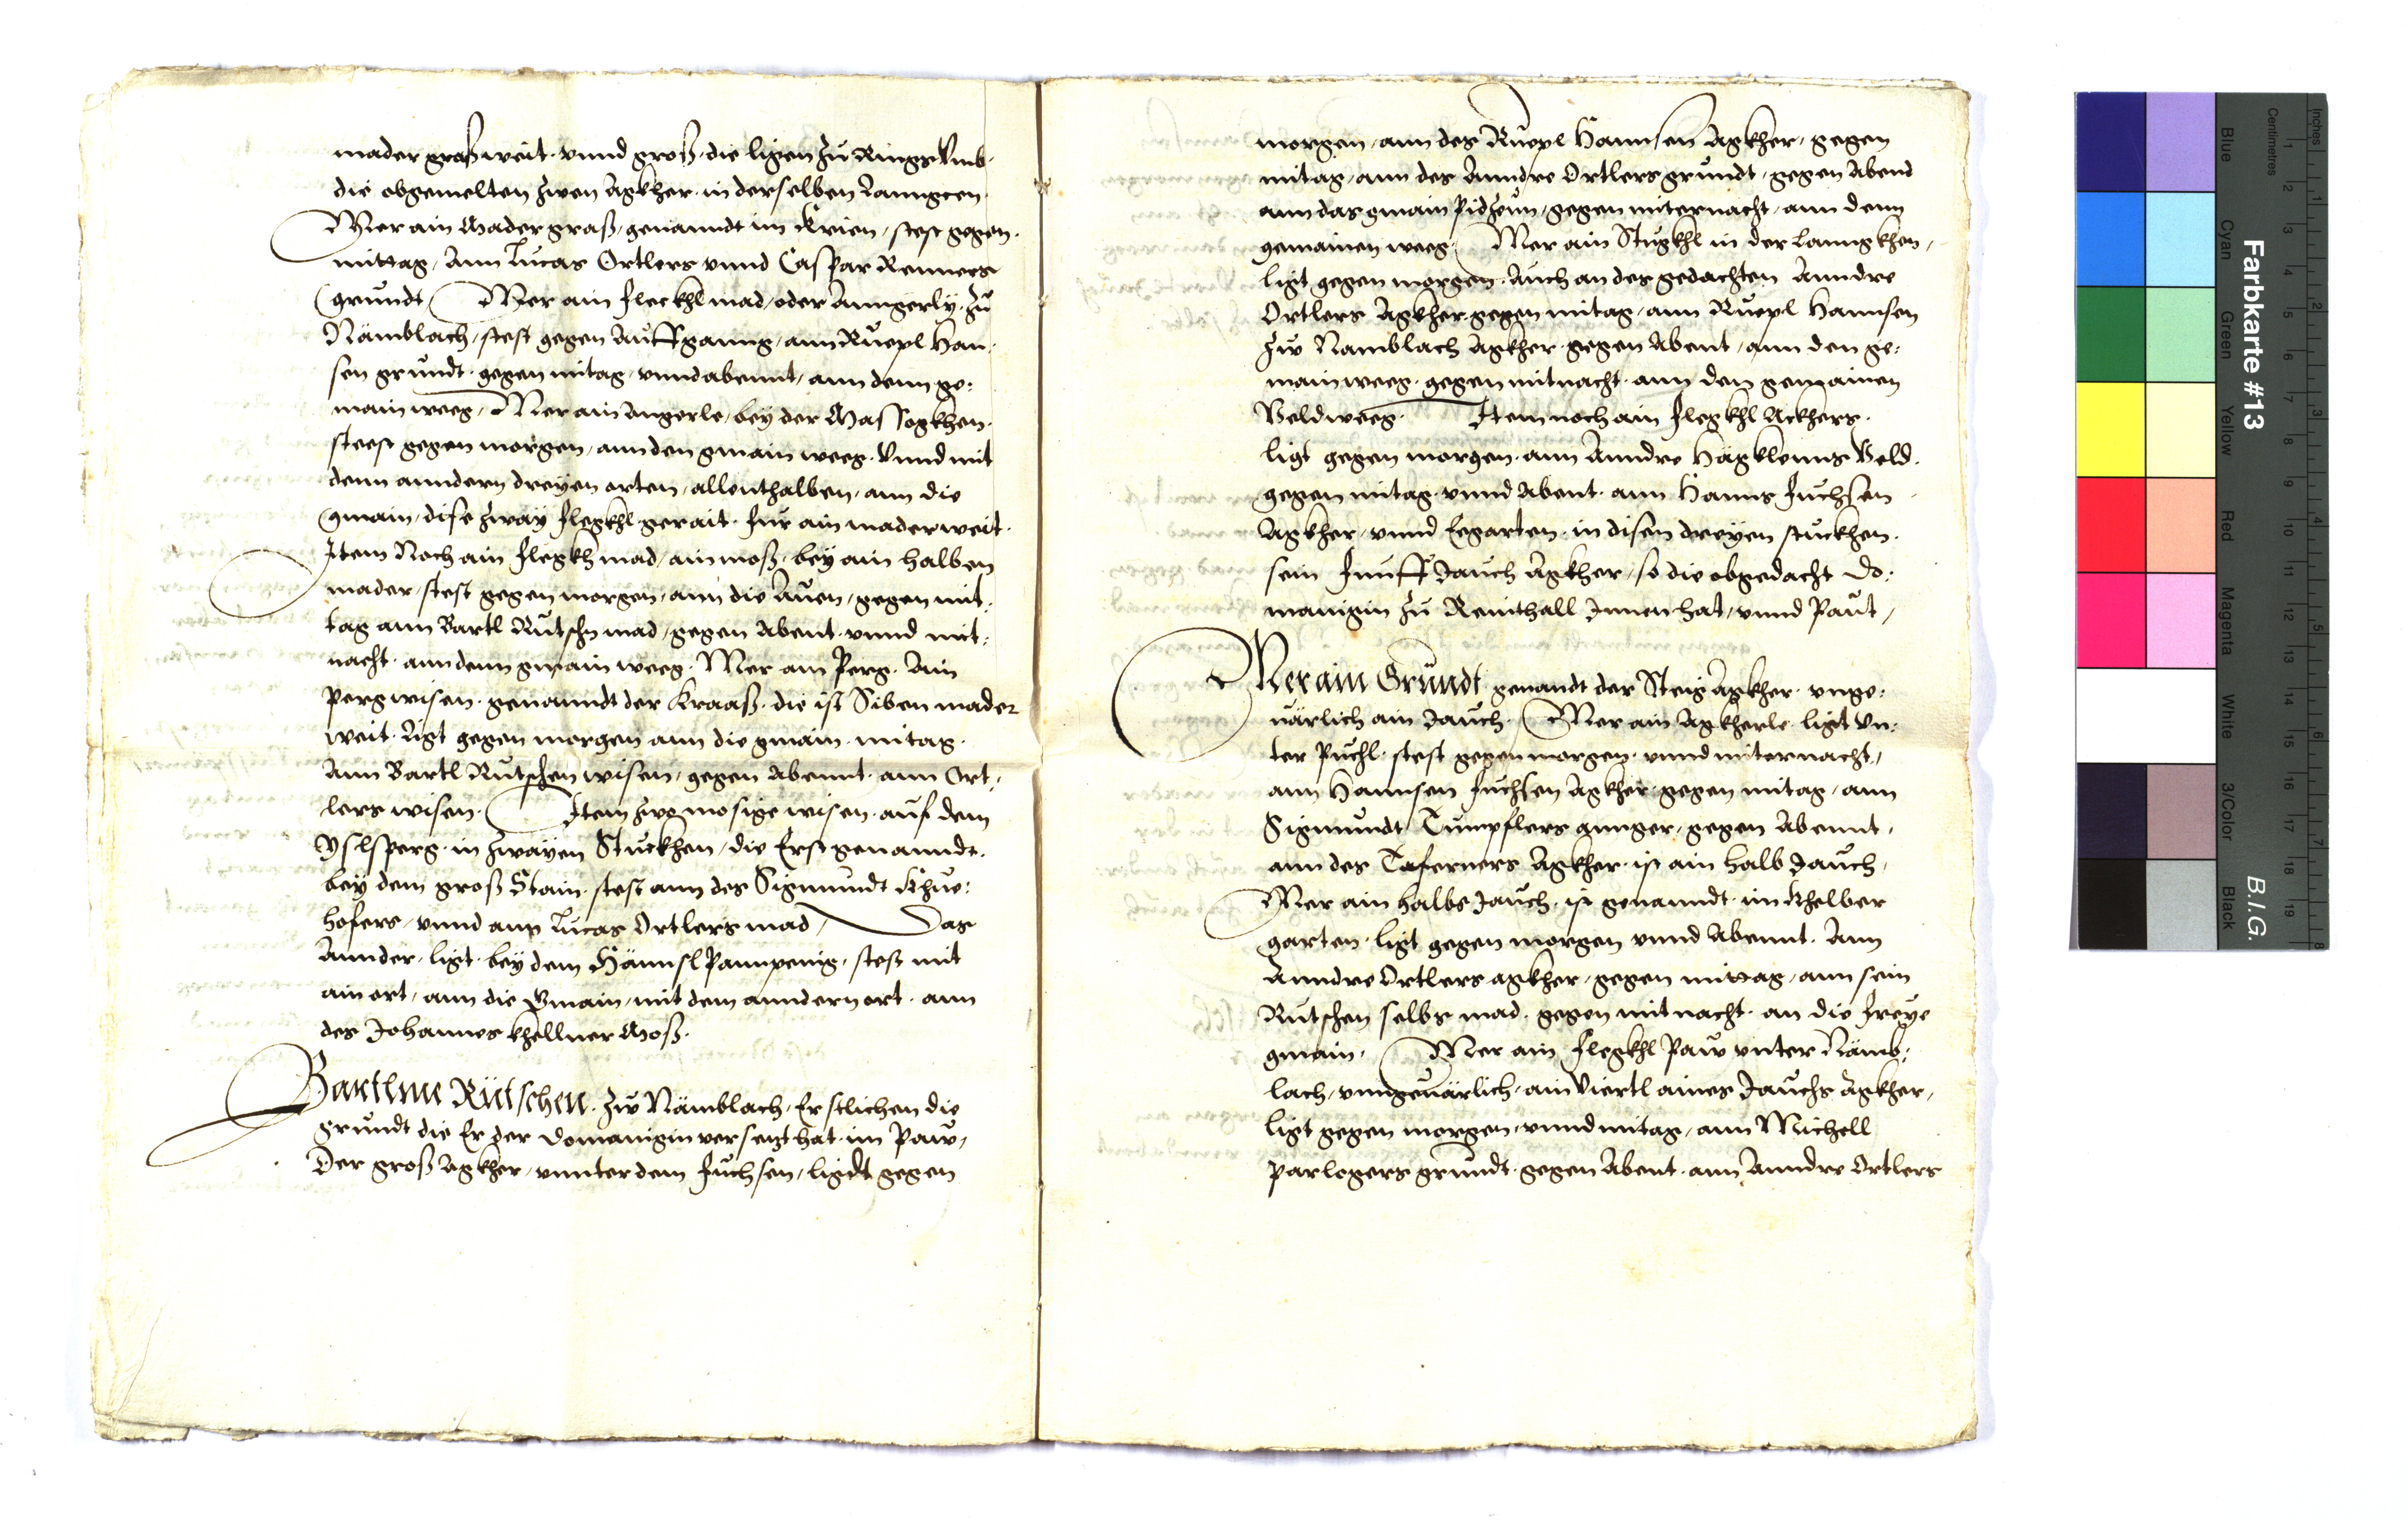 mader graß weit. vnnd groß. die ligen zu Rings Vmb.
die obgemelten zwen Agkher. in derselben Lanngcen.
Mer ain Mader graß, genanndt im Krien, stest gegen.
mittag, Ann Lucas Ortlers vnnd Caspar Renners
grundt Mer ain fleckhl mad, oder Anngerlÿ. zu
Nämblach, stest gegen Auffganng, ann Ruepl Han,
sen grundt. gegen mitag, vnnd abennt, ann denn ge:
main weeg, Mer ain Angerle, bey der Massogkhen.
steest gegen morgen, ann den gmain weeg. Vnnd mit
denn anndern dreyen orten, allenthalben, ann die
gmain, dise zwaÿ flegkhl gerait. für ain mader weit.
Item Noch ain flegkh mad, ain moß, bey ain halben
mader, stest gegen morgen, ann die Auen, gegen mit,
tag ann Bartl Rutschn mad, gegen Abent. vnnd mit,
nacht. ann denn gmain weeg. Mer am Perg. Ain
Pergwisen. genanndt der Kraaß. die ist Siben mader
weit. Ligt gegen morgen ann die gmain. mitag.
Ann Bartl Rutschen wisen, gegen Abennt. ann Ort,
lers wisen. Item zwo mosige wisen. auf dem
Yslsperg. in zwaÿen Stuckhen, die Erst genanndt.
beÿ dem groß Stain. stest ann des Sigmundt Khue:
hofers, vnnd ann Lucas Ortlers mad, Das
Annder, ligt. beÿ dem Hännsl Pannpenig, stest mit
ain ort, ann die Gmain, mit dem anndern ort. ann
des Johannes khellner Moß.
Bartlme Rütschen. zw Nämblach, Erstlichen die
grundt die Er der Domanigin versetzt hat. im Paw,
Der groß Agkher, vnnter dem Fuchsen, ligdt gegen
morgen, ann des Ruepl Hannsen Agkher, gegen
mitag, ann des Anndre Ortlers grundt, gegen Abend
ann das gmain Pidzeun, gegen miternacht, ann denn
gemainen weeg, Mer ain Stugkhl in der Lanngkhen,
ligt gegen morgen. Auch an des gedachten Anndre
Ortlers Agkher. gegen mitag, ann Ruepl Hannsen
zw Namblach Agkher. gegen Abent, ann den ge:
main weeg. gegen mitnacht. ann den gemainen
Veldweeg. Item noch ain flegkhl Ackhers.
ligt gegen morgen. ann Anndre Hägkleins Veld.
gegen mitag. vnnd Abent. ann Hanns Fuchsen
Agkher, vnnd Eegarten. in disen dreyen stuckhen.
sein Funff Jauch Agkher, so die obgedacht Do:
manigin zu Reinthall Innen hat, vnnd Paut,
Mer ain Grundt genandt der Steig Agkher. vnge:
uärlich ain Jauch. Mer ain Agkherle. ligt Vn:
ter Puchl. stest gegen morgen. vnnd miternacht,
ann Hannsen Fuchsen Agkher. gegen mitag, ann
Sigmundt Tumpflers annger, gegen Abennt,
ann des Taferners Agkher. ist ain halb Jauch,
Mer ain halbs Jauch. ist genanndt. im Khelber
garten. ligt gegen morgen vnnd Abennt. Ann
Anndre Ortlers agkher, gegen mittag, ann sein
Rutschen selbs mad. gegen mitnacht. an die freye
gmain, Mer ain flegkhl Paw vnter Nämb:
lach, vnngeuärlich, ain Viertl aines Jauchs Agkher,
ligt gegen morgen, vnnd mitag, ann Michell
Parlegers grundt. gegen Abent. ann Anndre Ortlers
Farbkarte #13
B.I.G.
Blue
Cyan
Green
Yellow
Red
Magenta
White
3/Color
Black
Centimetres
Inches
1 2 3 4 5 6 7 8 9 10 11 12 13 14 15 16 17 18 19
1 2 3 4 5 6 7 8